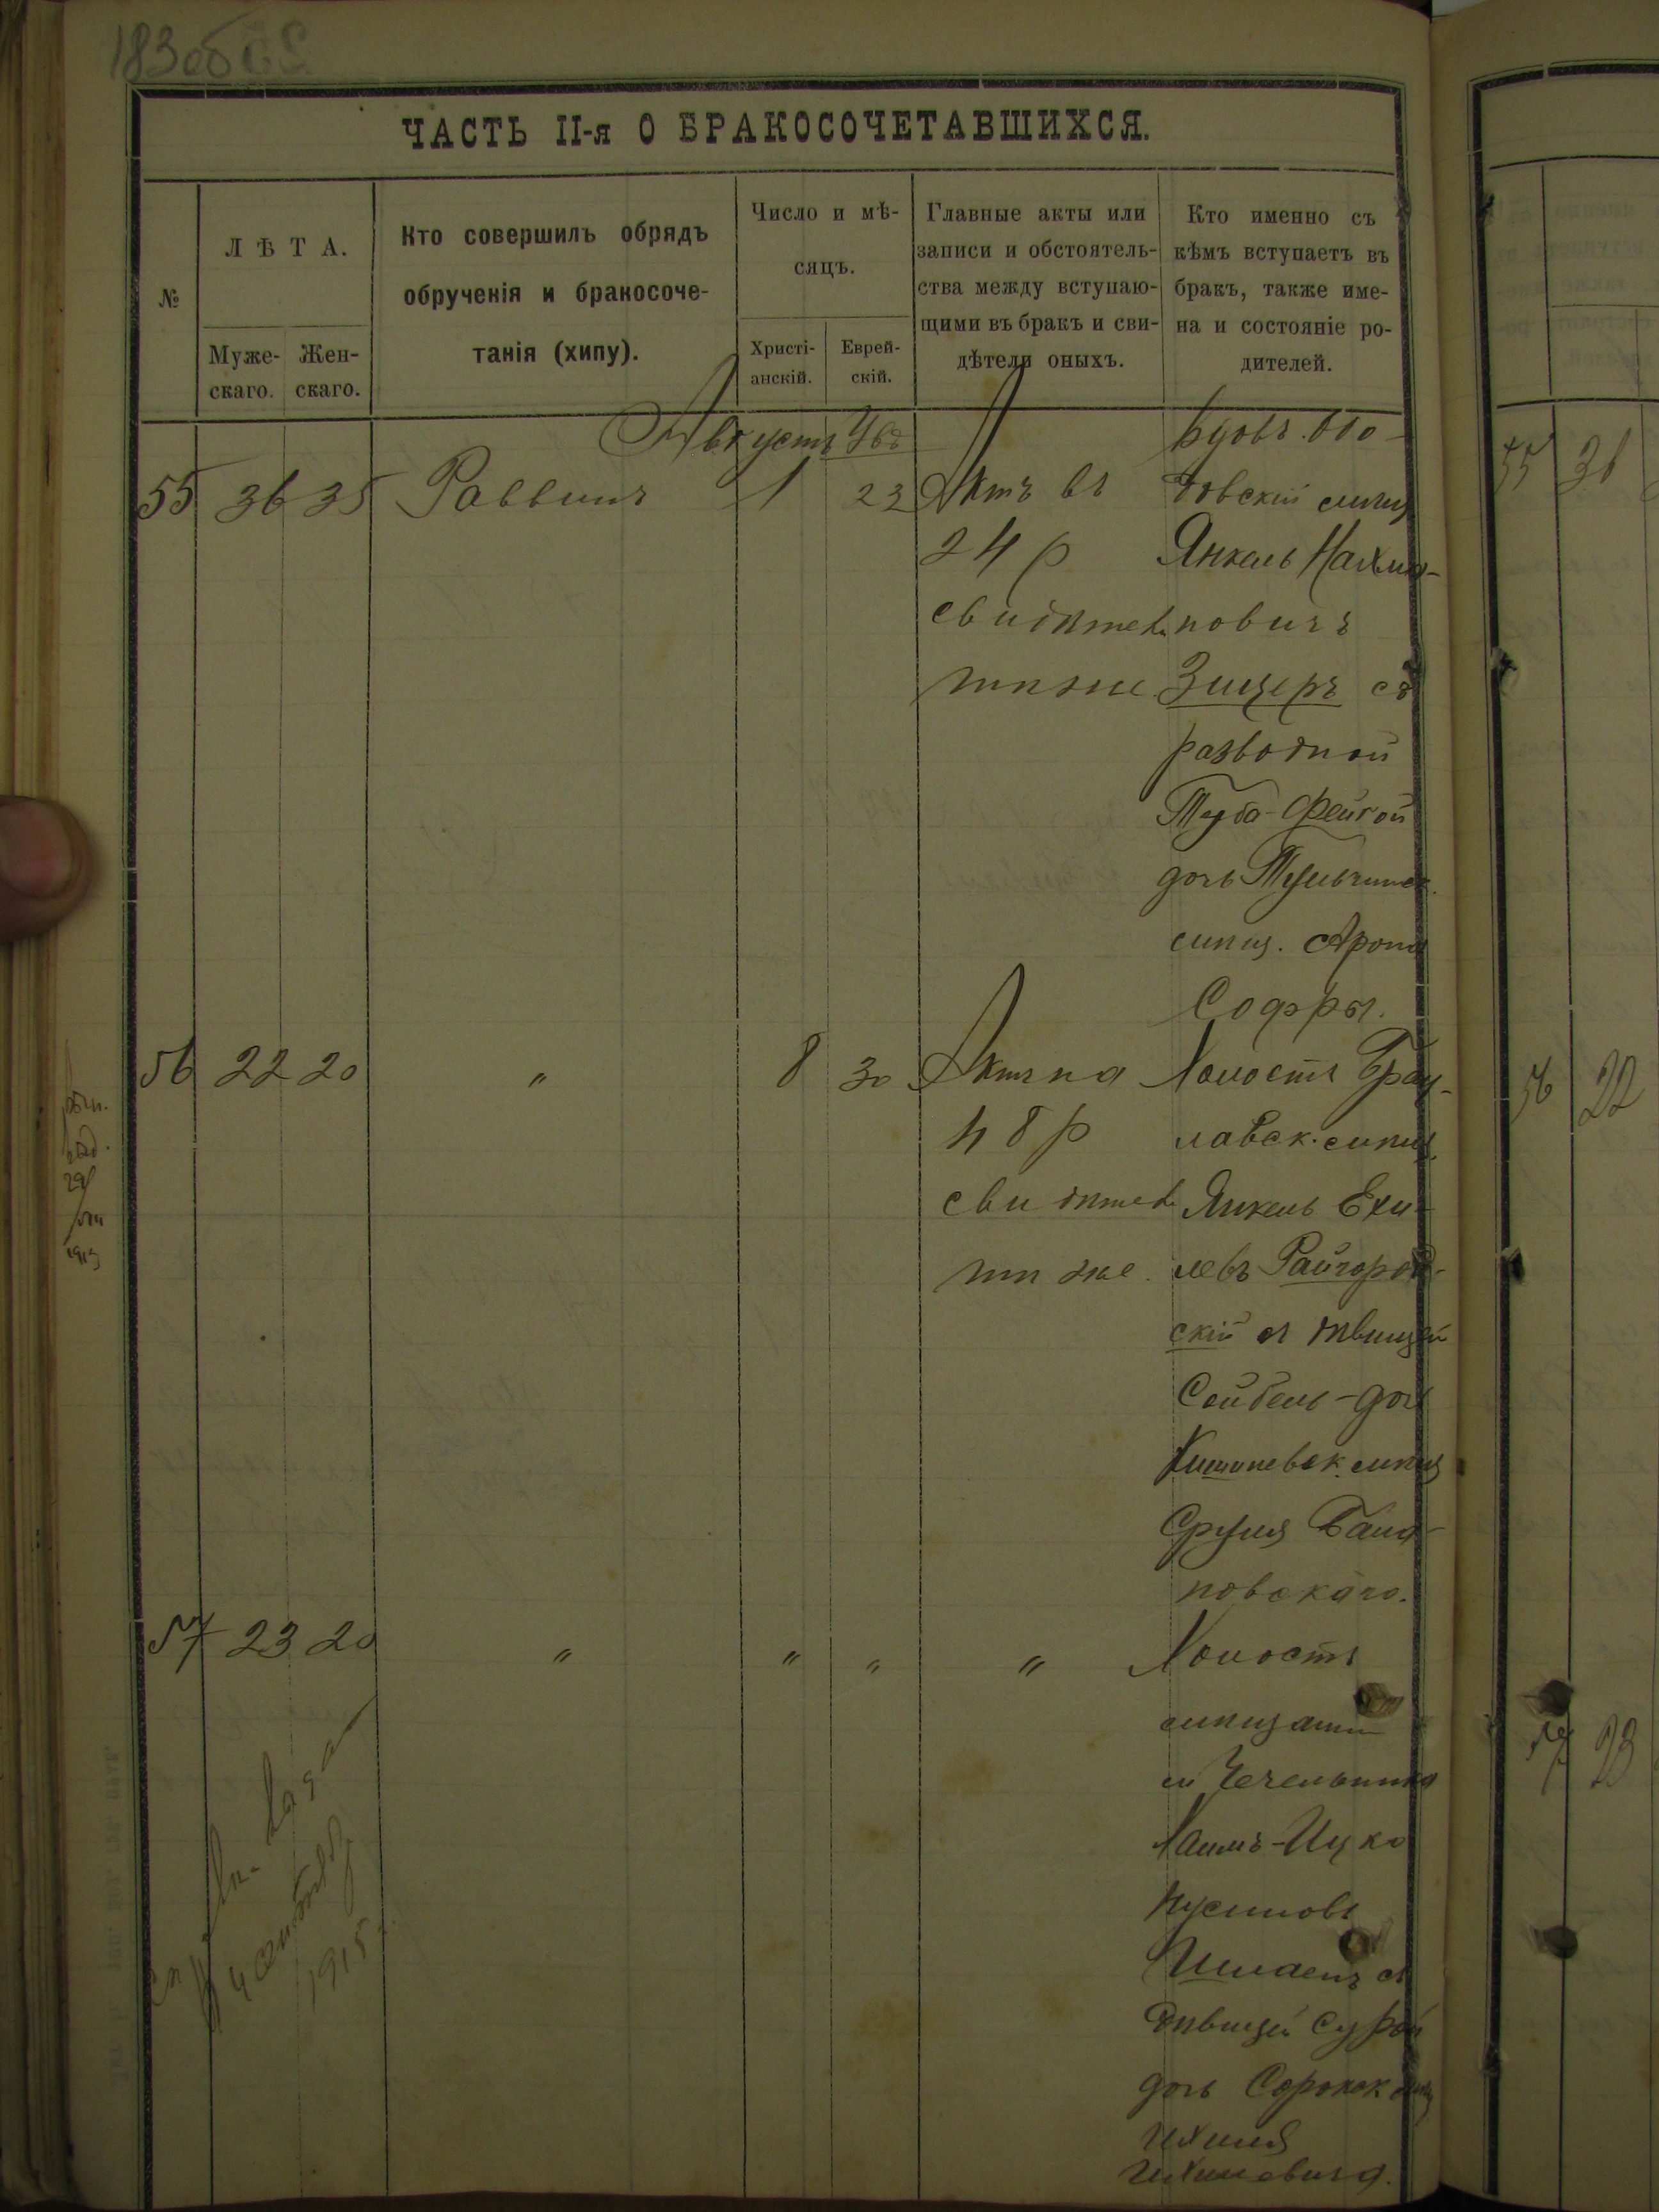 183об
ЧАСТЬ II-я О БРАКОСОЧЕТАВШИХСЯ.
№
ЛѢТА.
Муже-
скаго.
Жен-
скаго.
Кто совершилъ обрядъ
обрученія и бракосоче-
танія (хипу).
Число и мѣ-
сяцъ.
Христі-
анскій.
Еврей-
скій.
Главные акты или
записи и обстоятель-
ства между вступаю-
щими въ бракъ и сви-
дѣтели оныхъ.
Кто именно съ
кѣмъ вступаетъ въ
бракъ, также име-
на и состояніе ро-
дителей.
Августъ Явъ
55 36 35 Раввинъ 1 23
Актъ въ
24 р
свидѣтел
тѣ же
Вдовъ.
довскій мѣщ
Янкель Нахма-
новичъ
Зицеръ съ
разводной
Туба-Фейгой
дочь Тульчинск.
мѣщ. Арона
Софры.
56 22 20 " 8 30
Актъ на
48 р
свидѣтел
тѣ же.
Холостъ Брац-
лавск. мѣщ.
Янкель Ехи-
левъ Райгород-
скій съ дѣвицей
Сейбель-дочь
Кишиневск. мѣщ
Сруля Бала-
новскаго.
57 23 20 " " " "
Холостъ
мѣщанин
м Чечельника
Хаимъ-Ицко
Нусиновъ
Шпаенъ съ
дѣвицей Сурой
дочь Сорокск мѣщ
Ихиля
Ихилевича.
1915
55 36
56 22
57 23